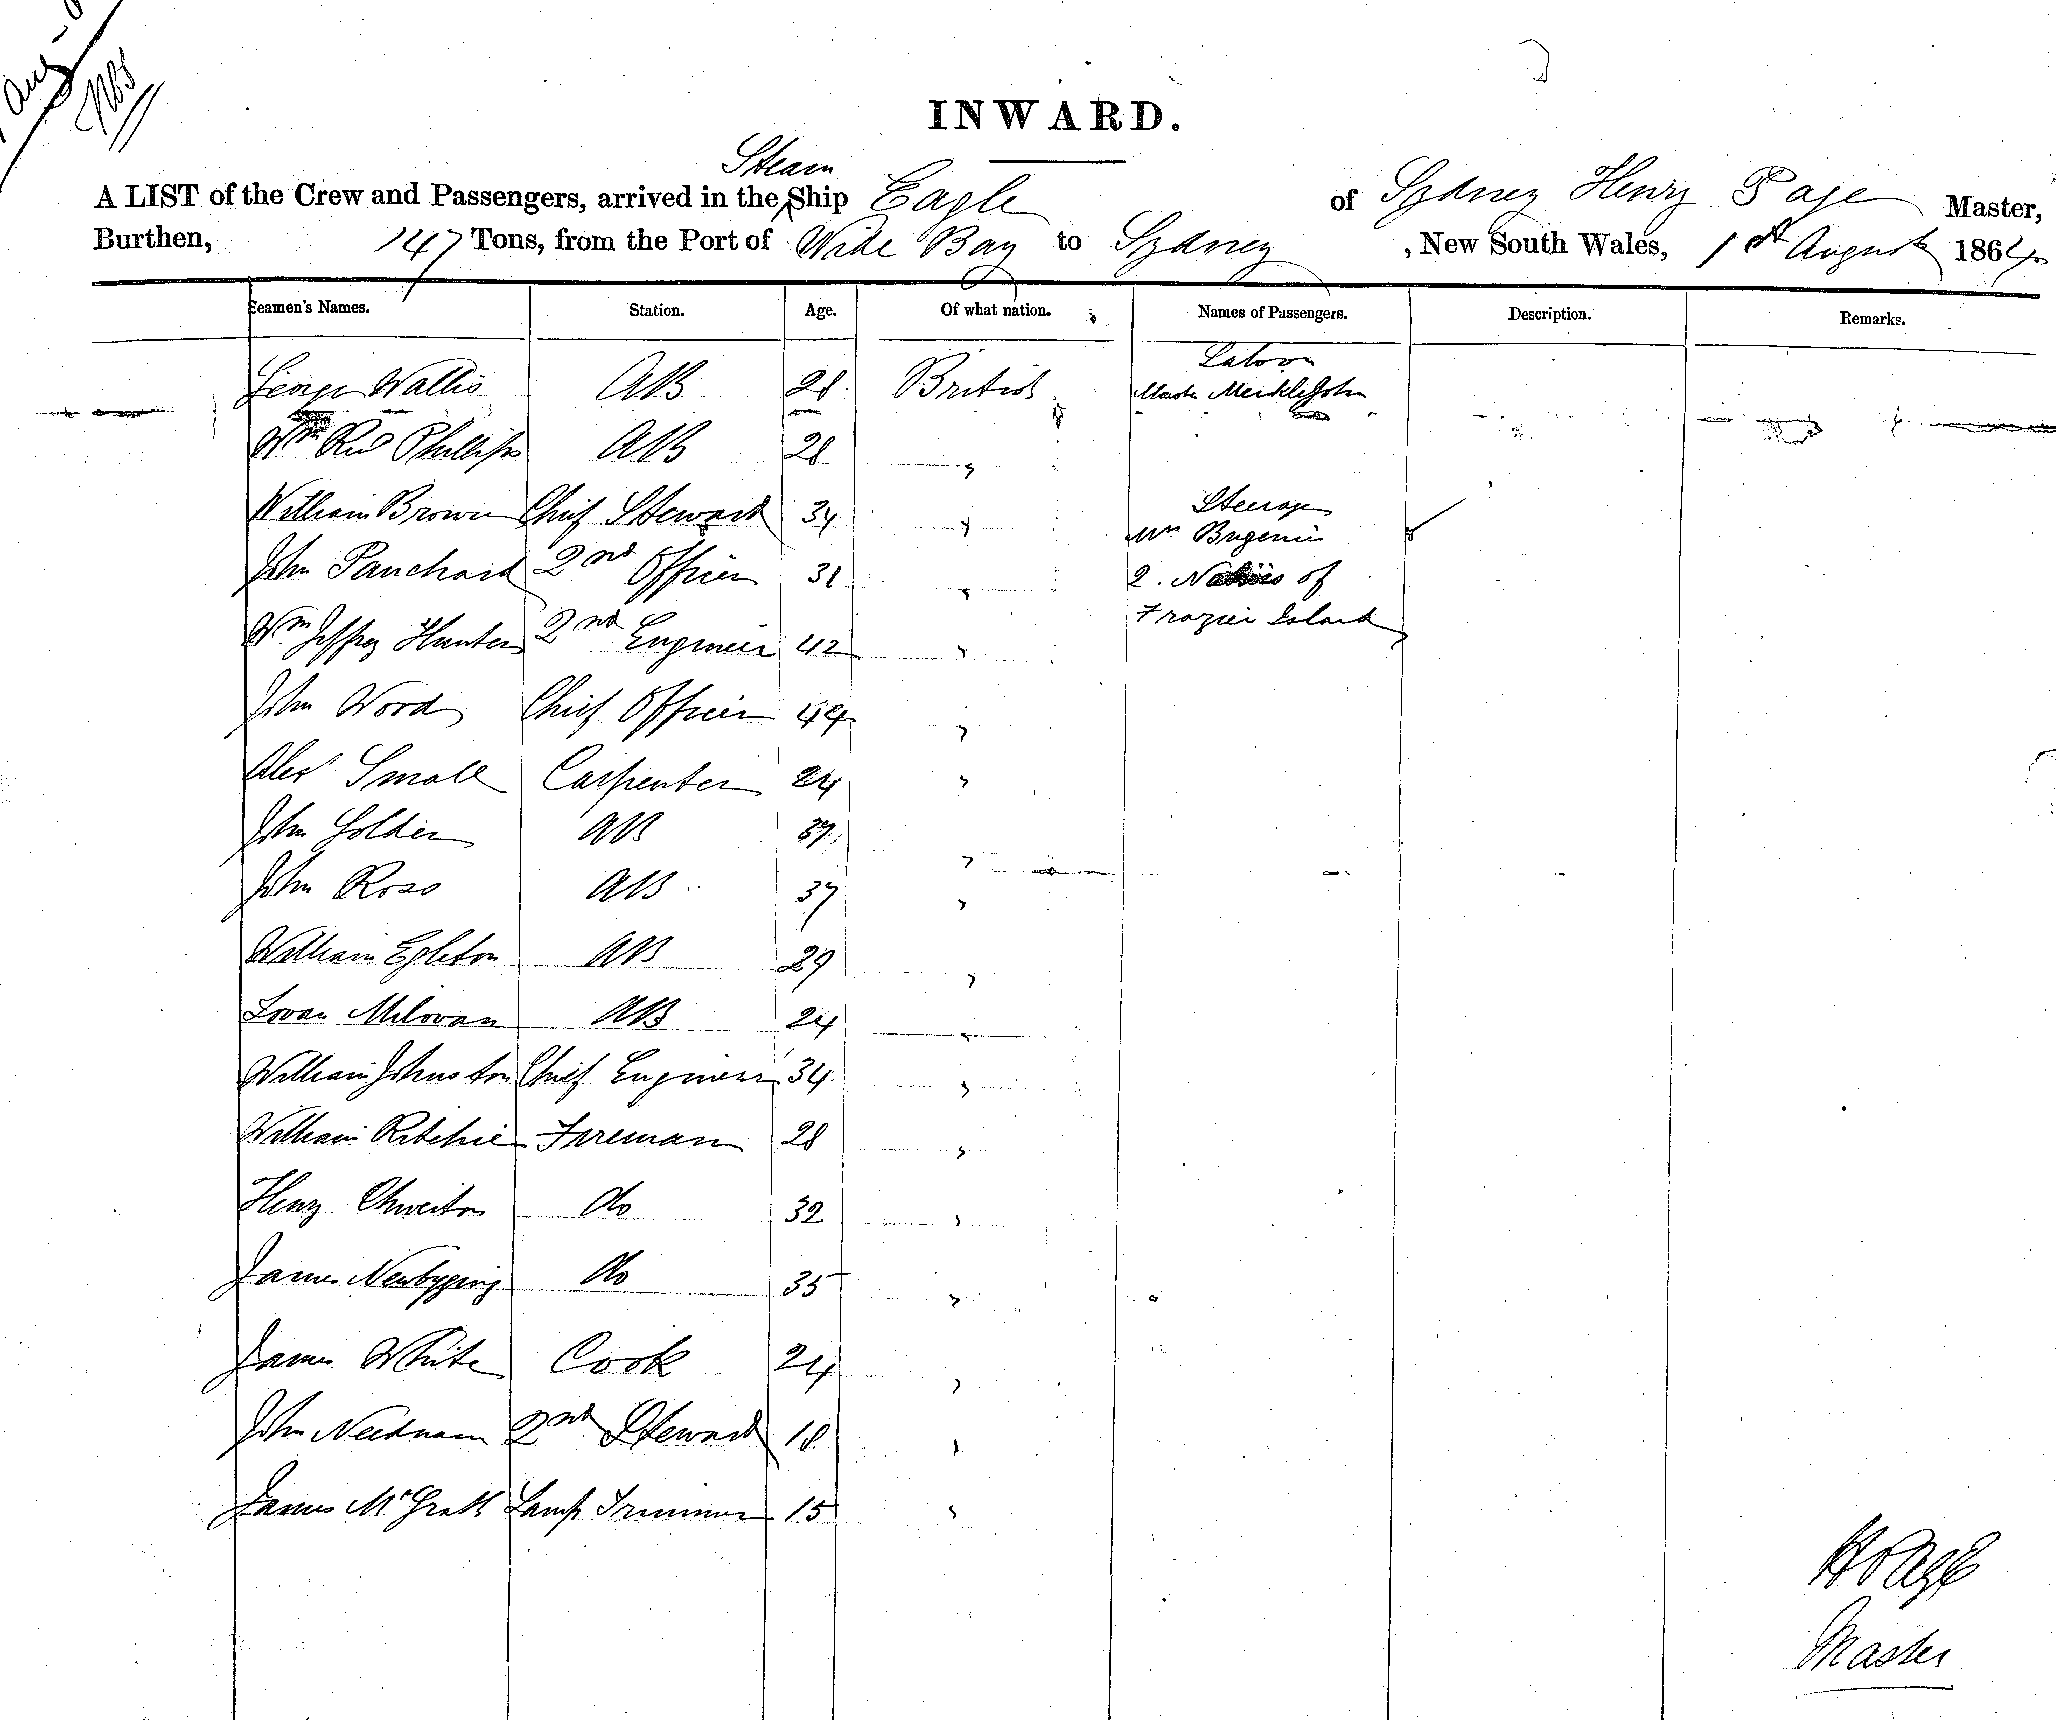 Aug
INWARD.
Steam
A LIST of the Crew and Passengers, arrived in the Ship Eagle of Sydney Henry Page Master,
Burthen, 147 Tons, from the Port of Wide Bay to Sydney , New South Wales, 1st August 1864
Seamen's Names. Station. Age. Of what nation. Names of Passengers. Description. Remarks.
Saloon
George Wallis AB 28 British MeickleJohn
Wm Rd Phillips AB 28 "
Steerage
William Brown Chief Steward 34 "
Mr
John Panchard 2nd Officer 31 " 2. Natives of
Frazier Island
Wm Jeffrey Hunter 2nd Engineer 42 "
John Wood Chief Officer 44 "
Alexr Small Carpenter 24 "
John Golden AB 37 "
John Ross AB 37 "
William Egleton AB 29 "
Lovan Milovan AB 24 "
William Johnston Chief Engineer 34 "
William Ritchie Fireman 28 "
Henry do 32 "
James Newbyging do 35 "
James White Cook 24 "
John Neednam 2nd Steward 18 "
James McGrath Lamp Trimmer 15 "
H Page
Master